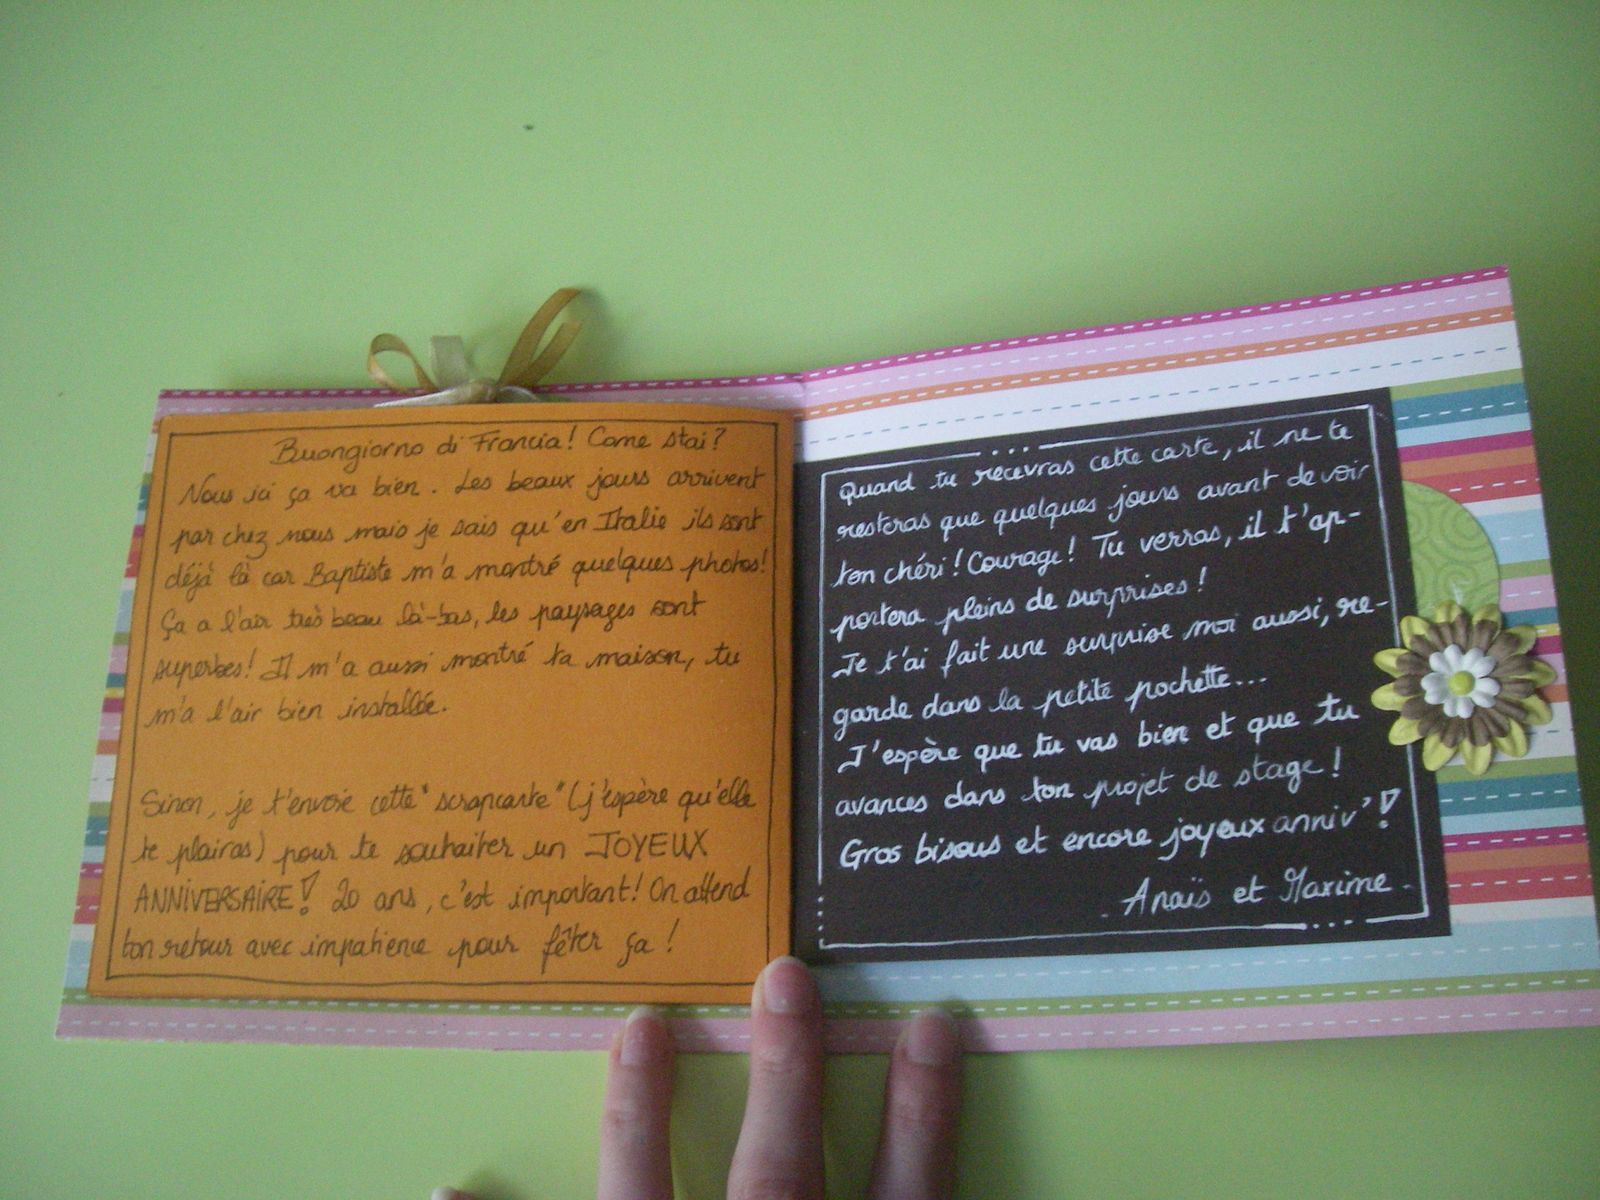 Buongiorno di Francia! Come stai?
Nous ici ça va bien. Les beaux jours arrivent
par chez nous mais je sais qu'en Italie ils sont
déjà là car Baptiste m'a montré quelques photos!
Ça a l'air très beau là-bas, les paysages sont
superbes! Il m'a aussi montré ta maison, tu
m'a l'air bien installée.
Sinon, je t'envoie cette "scrapcarte" (j'espère qu'elle
te plairas) pour te souhaiter un JOYEUX
ANNIVERSAIRE! 20 ans, c'est important! On attend
ton retour avec impatience pour fêter ça!
Quand tu recevras cette carte, il ne te
resteras que quelques jours avant de voir
ton chéri! Courage! Tu verras, il t'ap-
portera pleins de surprises!
Je t'ai fait une surprise moi aussi, re-
garde dans la petite pochette...
J'espère que tu vas bien et que tu
avances dans ton projet de stage!
Gros bisous et encore joyeux anniv'!
Anaïs et Maxime